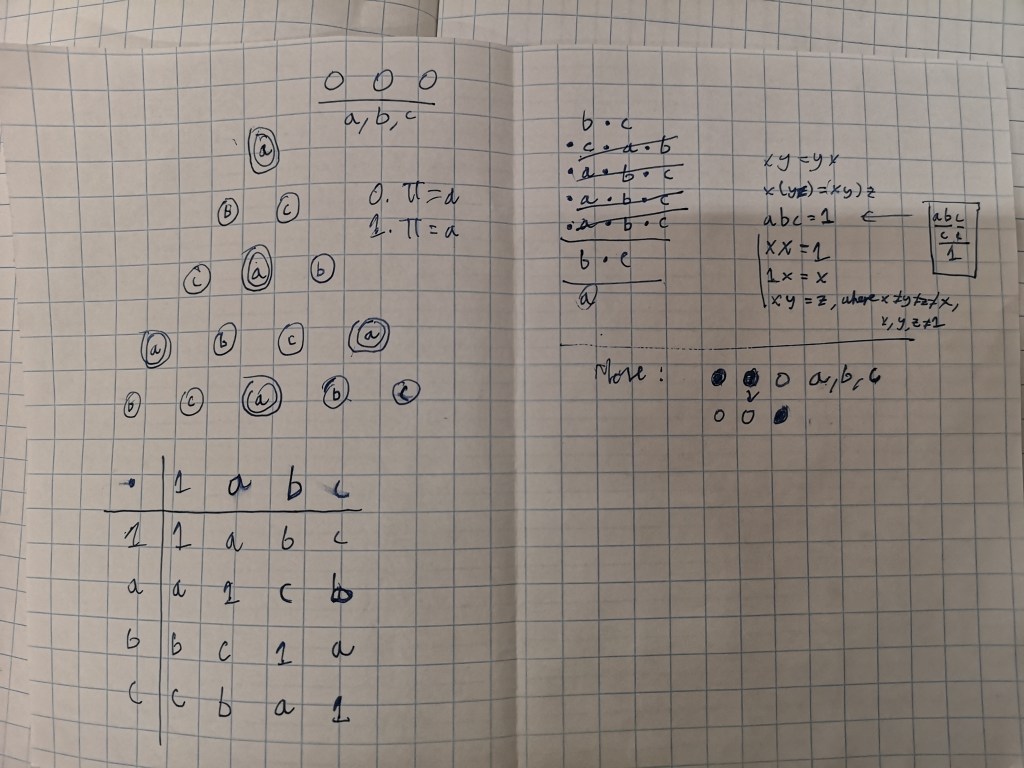 O O O
a, b, c
a
b c
0. Π = a
1. Π = a
c a b
a b c a
b c a b c
· 1 a b c
1 1 a b c
a a 1 c b
b b c 1 a
c c b a 1
b · c
· c · a · b
· a · b · c
· a · b · c
· a · b · c
b · c
a
xy = yx
x(yz) = (xy)z
abc = 1 ←
abc
c c
1
xx = 1
1x = x
xy = z, where x≠y≠z≠x,
x, y, z ≠ 1
Move : ● ● o a, b, c
o o ●